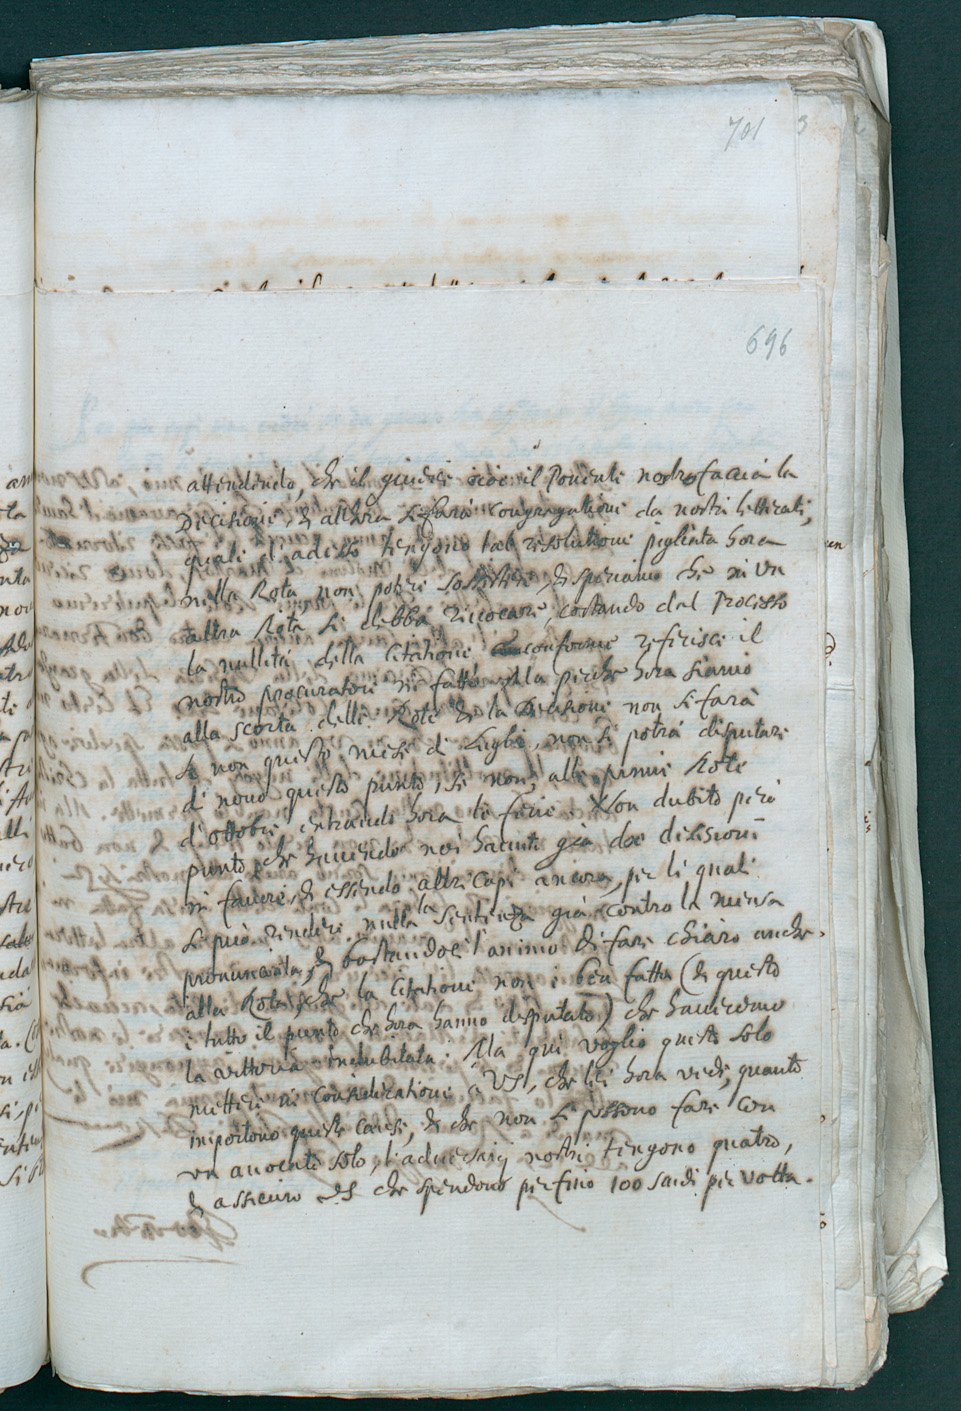 701
696
attendendo, che il giudice cioè il Ponente nostro faccia la
Decisione, et allhora si farà Congregatione da nostri letterati,
quali d'adesso tengono tal resolutione pigliata hora
nella Rota non potere sossistere et speriamo che in un
altra Rota si debba rivocare, costando dal Processo
la nullità della Citatione conforme referisce il
nostro procuratore in fatto. Ma perche hora siamo
alla scorta delle Rote et la Decisione non si farà
se non questo mese di Luglio, non si potrà disputare
di novo questo punto, se non alle prime Rote
d'ottobre, entrando hora le ferie. Non dubito però
punto, che havendo noi havute già doe decisioni
in favore et essendo altri capi ancora, per li quali
si può rendere nulla la sentenza già contro la mensa
pronunciata, et bastandoci l'animo di fare chiaro anche
alla Rota, che la Citatione non è ben fatta (et questo
è tutto il punto che hora hanno disputato) che haveremo
la vittoria indubitata. Ma qui voglio questo solo
mettere in consideratione a VS, che lei hora vede, quanto
importono queste cause, et che non si possono fare con
un avocato solo, l'adversarij nostri tengono quatro,
et assicuro VS che spendono per fino 100 scudi per volta.